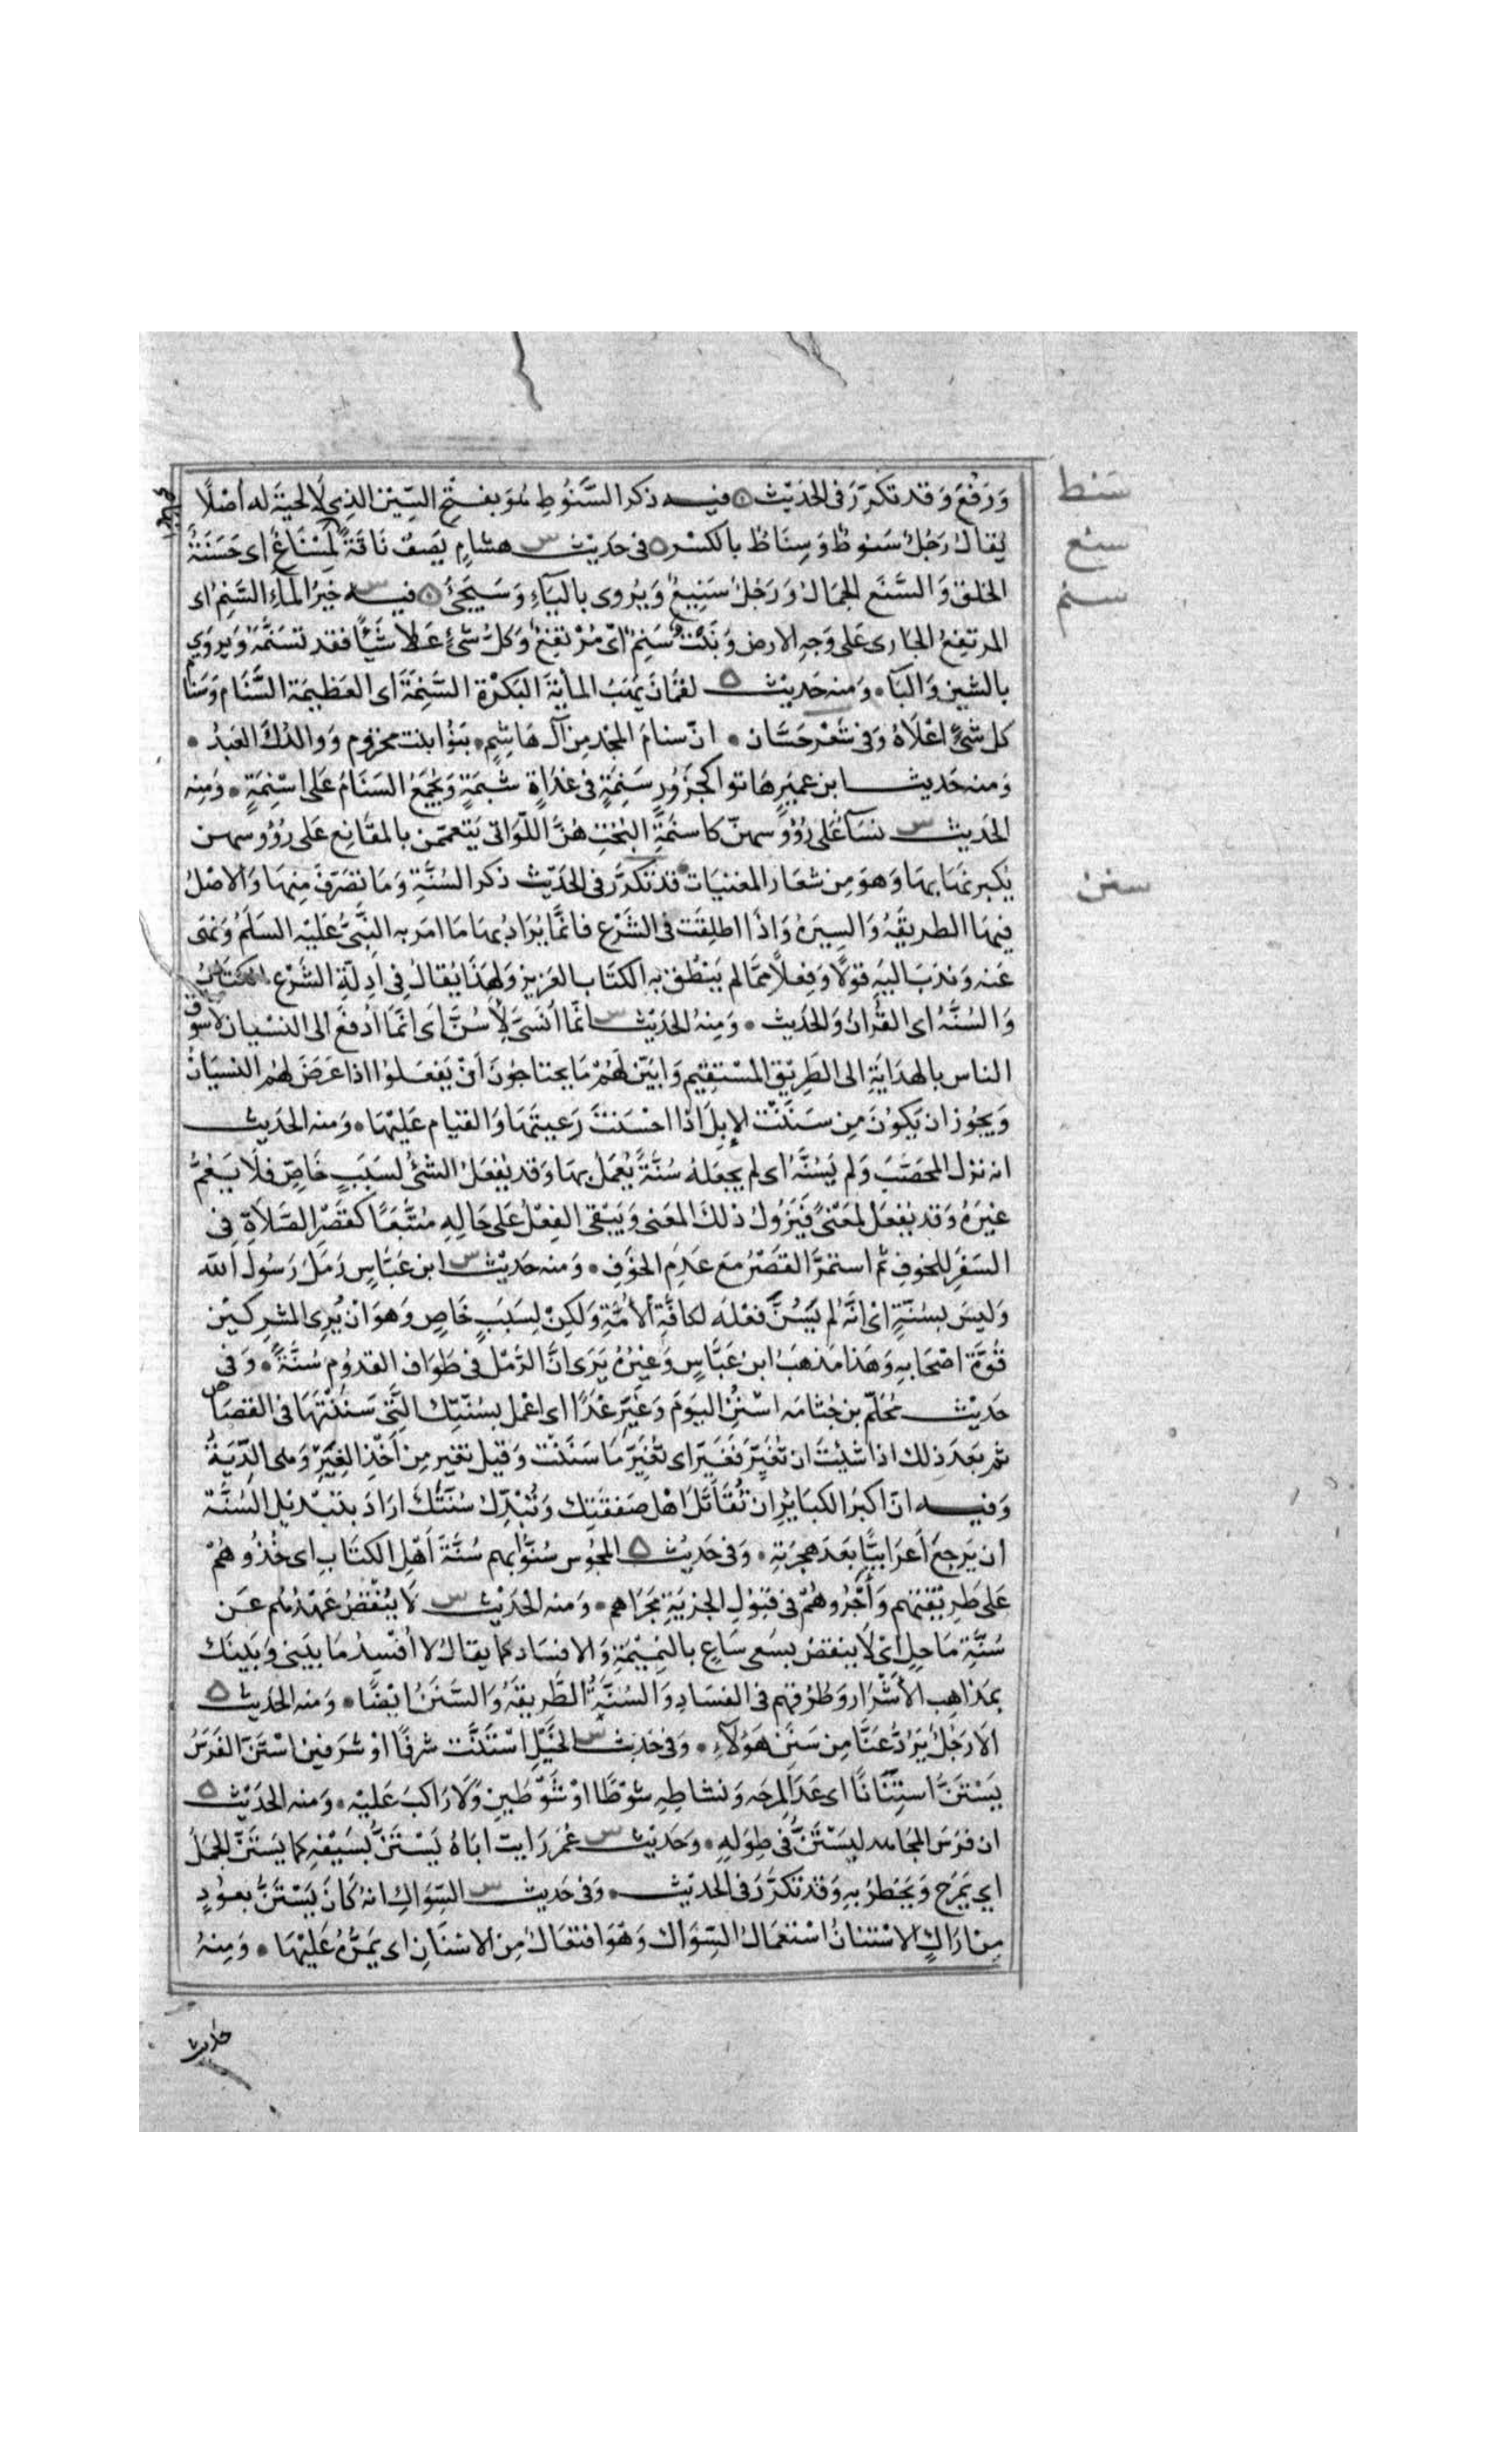 وَرَفَعَ وَقد تكرّرَ فى الحَدِيْث فيـه ذكر السَّنُوطِ هُوَ بفتحِ السِّيْن الذِي لَا لحيَةَ له أصْلًا
سنط
يُقالُ رَجُلٌ سَنوطٌ وَسِنَاطٌ بالكسْر فى حَدِيْث هشامٍ يَصِفُ نَاقَةً لَمِسْنَاعٌ اى حَسَنَةُ
سنع
الخلق وَالسَّنَع الجمَالُ وَرَجُلٌ سَنِيعٌ وَيُروى باليَآءِ وَسَيَجِئُ فيـه خَيْرُ المآءِ السَّنِمُ اى
سنم
المرتفِعُ الجَارى عَلى وَجهِ الارض وَنَبْتٌ سَنِمٌ اىْ مُرْتفِعٌ وَكلُّ شئٍ عَلا شَيْأً فقد تسَنَّمَهُ وَيروى
بالشين وَالبَآء وَمنه حَدِيْث لقمَانَ يَهَبُ المأيَةَ البَكْرَة السَّنِمَةَ اى العَظِيمَة السَّنَام وَسَنَامُ
كل شئٍ اعْلَاهُ وَفى شعْر حَسَّان انّ سنامَ المجْد مِن آل هَاشِمٍ بَنُوا بنت مخزوم وَوالدُكَ العَبدُ
وَمنه حَديث ابن عميرٍ هَاتوا كجَزُورٍ سَنِمَةٍ فى غدَاةٍ شَبمَةٍ وَيُجمَعُ السَنَامُ عَلى اسْنِمَةٍ وَمِنه
الحَديث نسَآءٌ عَلى رُؤُوسهنّ كاسنمَةِ البُختِ هُنَّ اللَّوَاتى يَتعمّمن بالمقَانِع عَلى رُؤُوسهن
يُكبرنهَا بهَا وَهوَ مِن شعَار المغنيَات قد تكرَّر فى الحَدِيْث ذكر السُنَّةِ وَمَا تصَرّفَ مِنهَا وَالاصْلُ
سنن
فيهَا الطريقَةُ وَالسِيَرةُ وَاذَا اطلِقَت فى الشَرْع فانمَّا يُرَادُ بهَا مَا امَر به النَّبِىُّ عَلَيْه السَلَمُ وَنهَى
عَنه وَندَبَ اليَهِ قولًا وَفِعلاً ممَّا لم يَنْطق به الكتَاب العَزيز وَلهَذَا يُقالُ فِى ادِلّةِ الشَرْع الكتَابُ
وَالسُنَّةُ اى القُرانُ وَالحَديث وَمِنهُ الحَدِيْث انمّا أُنَسّى لِأسُنَّ اى انمَّا ادُفعَ الى النسْيان لأسوق
الناس بالهدَايَةِ الى الطَرِيْق المسْتقِيْم وَابَيّن لهُمْ مَا يحتاجُونَ اَنْ يَفعَلوُا اذا عَرَضَ لهُم النسيَانُ
وَيجُوز ان يَكوُنَ مِن سَنَنْت الإبلَ اذا احْسَنتَ رَعيتهَا وَالقيام عَليْهَا وَمنه الحَدِيث
انه نزل المحصَّبَ وَلم يَسُنَّهُ اى لم يجعَلهُ سُنَّةً يُعْمَلُ بهَا وَقد يُفعَلُ الشئُ لسَبَبٍ خَاصٍّ فلَا يَعُمُّ
غيرَهُ وَقد يفعَل لمعنًى فَيَزُولُ ذلكَ المعَنى وَيَبْقى الفِعْلُ عَلى حَالِهِ مُتَّبعًا كقَصْرِ الصَلَاةِ فى
السَفَرِ للخوفِ ثم استمرَّ القصْرُ مَعَ عَدِم الخوَفِ وَمنه حَدِيْث ابن عَبَّاسٍ رَمَلَ رَسُولُ الله
وَليسَ بسُنّةٍ اىْ انَّهُ لم يَسُنَّ فعْلهَ لكافَّةِ الأمَّةِ وَلكنْ لِسَبَبٍ خَاصٍ وَهوَ انْ يُرِى المشركيْن
قُوَّة اصْحَابهِ وَهَذا مَذهَبُ ابن عَبَّاسٍ وَغيرُهُ يَرَى انَّ الرَّمَل فى طوَاف القدوُم سُنَّةٌ وَفى
حَدِيْث مُحَلّم بن جثامَه اسْنُنِ اليَوَم وَغَيِّر غَدًا اى اعْمل بسُنّتِك الّتى سَنَنْتَهَا فى القصَاص
ثم بَعَدَ ذلك اذا شئِتَ ان تُغَيِّرَ فَغَيّر اى تُغَيّرَ مَا سَنَنْت وَقيْل تغير مِن اَخْذِ الغِيَرِ وَهى الدِّيَةُ
وَفيـه انّ اكبرَ الكبَايرِ ان تُقَاتلَ اهْل صَفقَتِك وَتُبَدّل سُنّتَكَ ارَادَ بتبْديْل السُنَّة
ان يَرجعَ اَعرَابيًّا بَعَدَ هِجرَتهِ وَفى حَديث المجُوس سُنُّوا بهم سُنَّةَ اَهْل الكتَابِ اى خُذُوهُمْ
عَلى طَرِيْقتهم وَأجْرُوهُمْ فى قبُولِ الجزيَةِ مجَرَاهم وَمنه الحَدِيْث لَا يُنْقَضُ عَهْدُهُم عَن
سُنَّةِ مَاحِلٍ اىْ لَا ينقضُ بسَعى سَاعٍ بالنِمِيْمَةِ وَالافسَاد كما يقالُ لا اُفْسِدُ مَا بَيَنى وَبَينَك
بمَذاهِب الأشْرَار وَطُرُقهم فى الفسَادِ وَالسُنَّةُ الطَّريقَةُ وَالسَّنَنُ ايْضًا وَمنه الحَديث
الَا رَجُلٌ يَرُدُّ عَنَّا مِن سَنَن هَؤُلَآءِ وَفى حَدِيْث الخَيْلِ اسْتَنَّت شرفًا اوْ شرَفين اسْتَنّ الفَرَسُ
يَسْتَنُّ اسْتِنَانًا اى عَدَا لمرَحِه وَنشاطِهِ شوْطًا اوْ شَوْطَيِن وَلَا رَاكبَ عَليْه وَمنه الحَدِيْث
ان فرَسَ المجَاهد ليَسْتَنُّ فى طِوَلهِ وَحَدِيْث عُمَرَ رَايت ابَاهُ يَسْتَنُّ بسَيْفهِ كما يَسْتنّ الجمَلُ
اى يَمْرَح وَيَخطرُ بهِ وَقد تكرَّرَ فى الحدِيْث وَفى حَديث السِّوَاكِ انهُ كَانَ يَسْتَنُّ بعوُدٍ
مِنْ ارَاكٍ الاسْتنانُ اسْتعْمَالُ السِّوَاك وَهوَ افتعَالٌ مِنَ الاسْنَانِ اى يَمُرُّهُ عَلَيْهَا وَمِنهُ
حديث